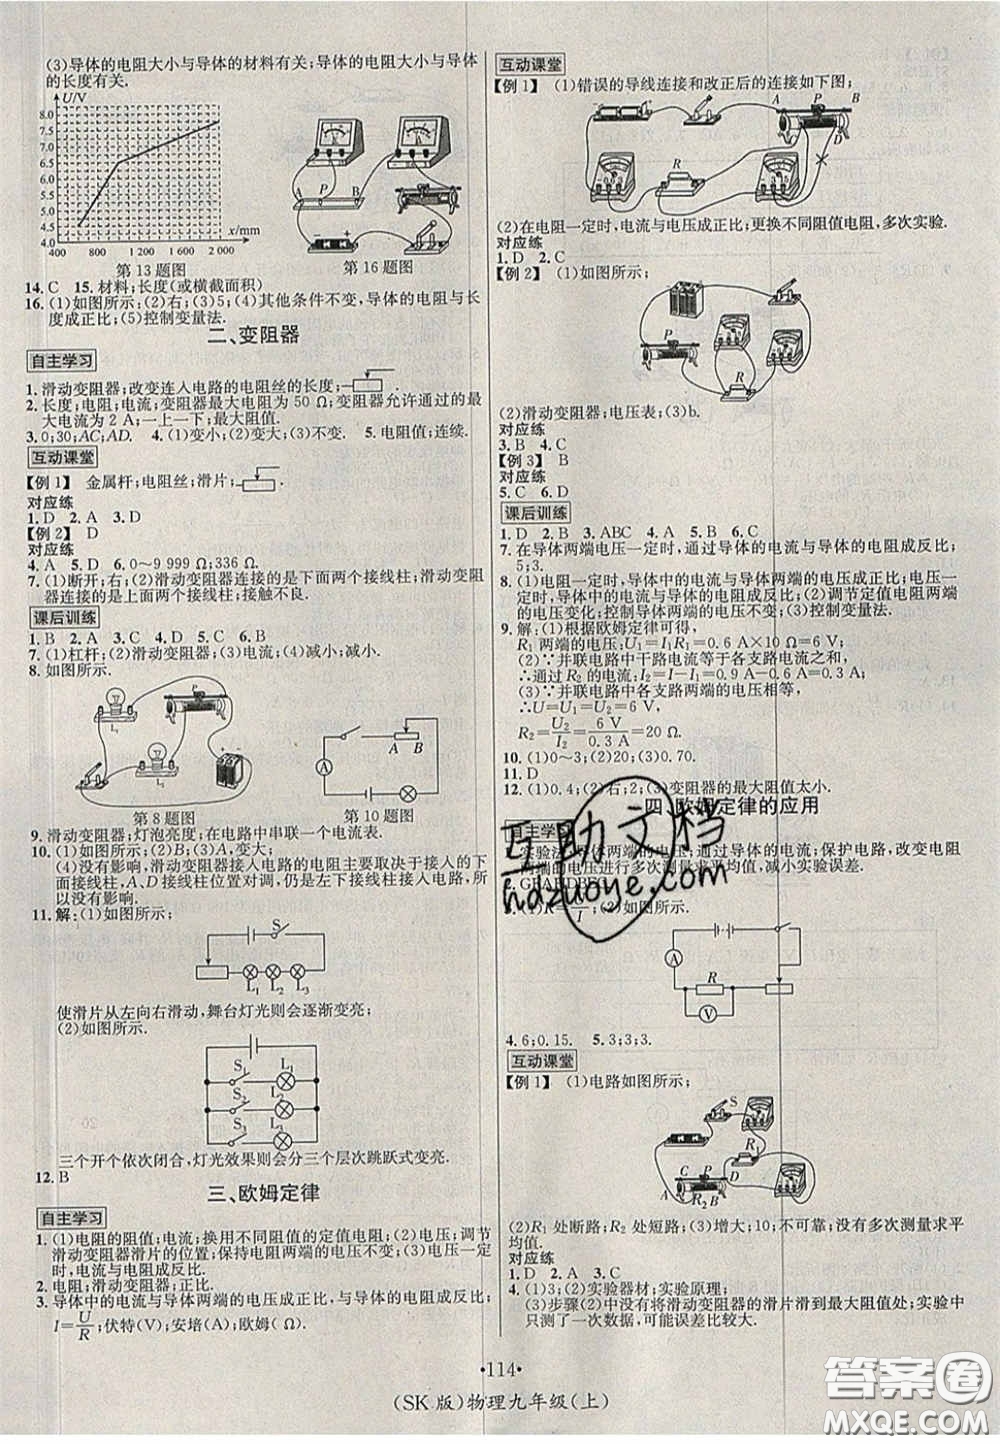 (3)导体的电阻大小与导体的材料有关;导体的电阻大小与导体
的长度有关.
U/V
8.0
7.5
7.0
6.5
6.0
5.5
5.0
4.5
4.0
400 800 1 200 1 600 2 000
x/mm
A P B
第13题图 第16题图
14. C 15. 材料;长度(或横截面积)
16. (1)如图所示;(2)右;(3)5;(4)其他条件不变,导体的电阻与长
度成正比;(5)控制变量法.
二、变阻器
自主学习
1. 滑动变阻器;改变连入电路的电阻丝的长度;
2. 长度;电阻;电流;变阻器最大电阻为 50 Ω;变阻器允许通过的最
大电流为 2 A;一上一下;最大阻值.
3. 0;30;AC;AD. 4. (1)变小;(2)变大;(3)不变. 5. 电阻值;连续.
互动课堂
【例 1】 金属杆;电阻丝;滑片;
对应练
1. D 2. A 3. D
【例 2】 D
对应练
4. A 5. D 6. 0~9 999 Ω;336 Ω.
7. (1)断开;右;(2)滑动变阻器连接的是下面两个接线柱;滑动变阻
器连接的是上面两个接线柱;接触不良.
课后训练
1. B 2. A 3. D 4. A 5. C 6. B
7. (1)杠杆;(2)滑动变阻器;(3)电流;(4)减小;减小.
8. 如图所示.
L₁
P
A B
A
第8题图 第10题图
9. 滑动变阻器;灯泡亮度;在电路中串联一个电流表.
10. (1)如图所示;(2)B;(3)A,变大;
(4)没有影响,滑动变阻器接入电路的电阻主要取决于接入的下
面接线柱,A、D接线柱位置对调,仍是左下接线柱接入电路,所
以没有影响.
11. 解:(1)如图所示;
S
L₁ L₂ L₃
使滑片从左向右滑动,舞台灯光则会逐渐变亮;
(2)如图所示.
S₁ L₁
S₂ L₂
S₃ L₃
三个开个依次闭合,灯光效果则会分三个层次跳跃式变亮.
12. B
三、欧姆定律
自主学习
1. (1)电阻的阻值;电流;换用不同阻值的定值电阻;(2)电压;调节
滑动变阻器滑片的位置;保持电阻两端的电压不变;(3)电压一定
时,电流与电阻成反比.
2. 电阻;滑动变阻器;正比.
3. 导体中的电流与导体两端的电压成正比,与导体的电阻成反比;
I=U/R;伏特(V);安培(A);欧姆(Ω).
互动课堂
【例 1】 (1)错误的导线连接和改正后的连接如下图;
A P B
D
R
(2)在电阻一定时,电流与电压成正比;更换不同阻值电阻,多次实验.
对应练
1. D 2. C
【例 2】 (1)如图所示;
P
R
(2)滑动变阻器;电压表;(3)b.
对应练
3. B 4. C
【例 3】 B
对应练
5. C 6. D
课后训练
1. D 2. B 3. ABC 4. A 5. B 6. C
7. 在导体两端电压一定时,通过导体的电流与导体的电阻成反比;
5;3.
8. (1)电阻一定时,导体中的电流与导体两端的电压成正比;电压一
定时,导体中的电流与导体的电阻成反比;(2)调节定值电阻两端
的电压变化;控制导体两端的电压不变;(3)控制变量法.
9. 解:(1)根据欧姆定律可得,
R₁ 两端的电压:U₁=I₁R₁=0.6 A×10 Ω=6 V;
(2)∵并联电路中干路电流等于各支路电流之和,
∴通过 R₂ 的电流:I₂=I−I₁=0.9 A−0.6 A=0.3 A;
(3)∵并联电路中各支路两端的电压相等,
∴U=U₁=U₂=6 V,
R₂=U₂/I₂=6 V/0.3 A=20 Ω.
10. (1)0~3;(2)20;(3)0.70.
11. D
12. (1)0.4;(2)右;2;(3)变阻器的最大阻值太小.
四、欧姆定律的应用
自主学习
1. 实验法;导体两端的电压;通过导体的电流;保护电路,改变电阻
两端的电压进行多次测量求平均值,减小实验误差.
3. (1)R=U/I;(2)如图所示.
A
R
V
4. 6;0.15. 5. 3;3;3.
互动课堂
【例 1】 (1)电路如图所示;
S
R₁
C P D
A R₂ B
(2)R₁ 处断路;R₂ 处短路;(3)增大;10;不可靠;没有多次测量求平
均值.
对应练
1. D 2. A 3. C
4. (1)3;(2)实验器材;实验原理;
(3)步骤(2)中没有将滑动变阻器的滑片滑到最大阻值处;实验中
只测了一次数据,可能误差比较大.
互助文档
hdzuoye.com
·114·
(SK 版)物理九年级(上)
答案圈
MXQE.COM